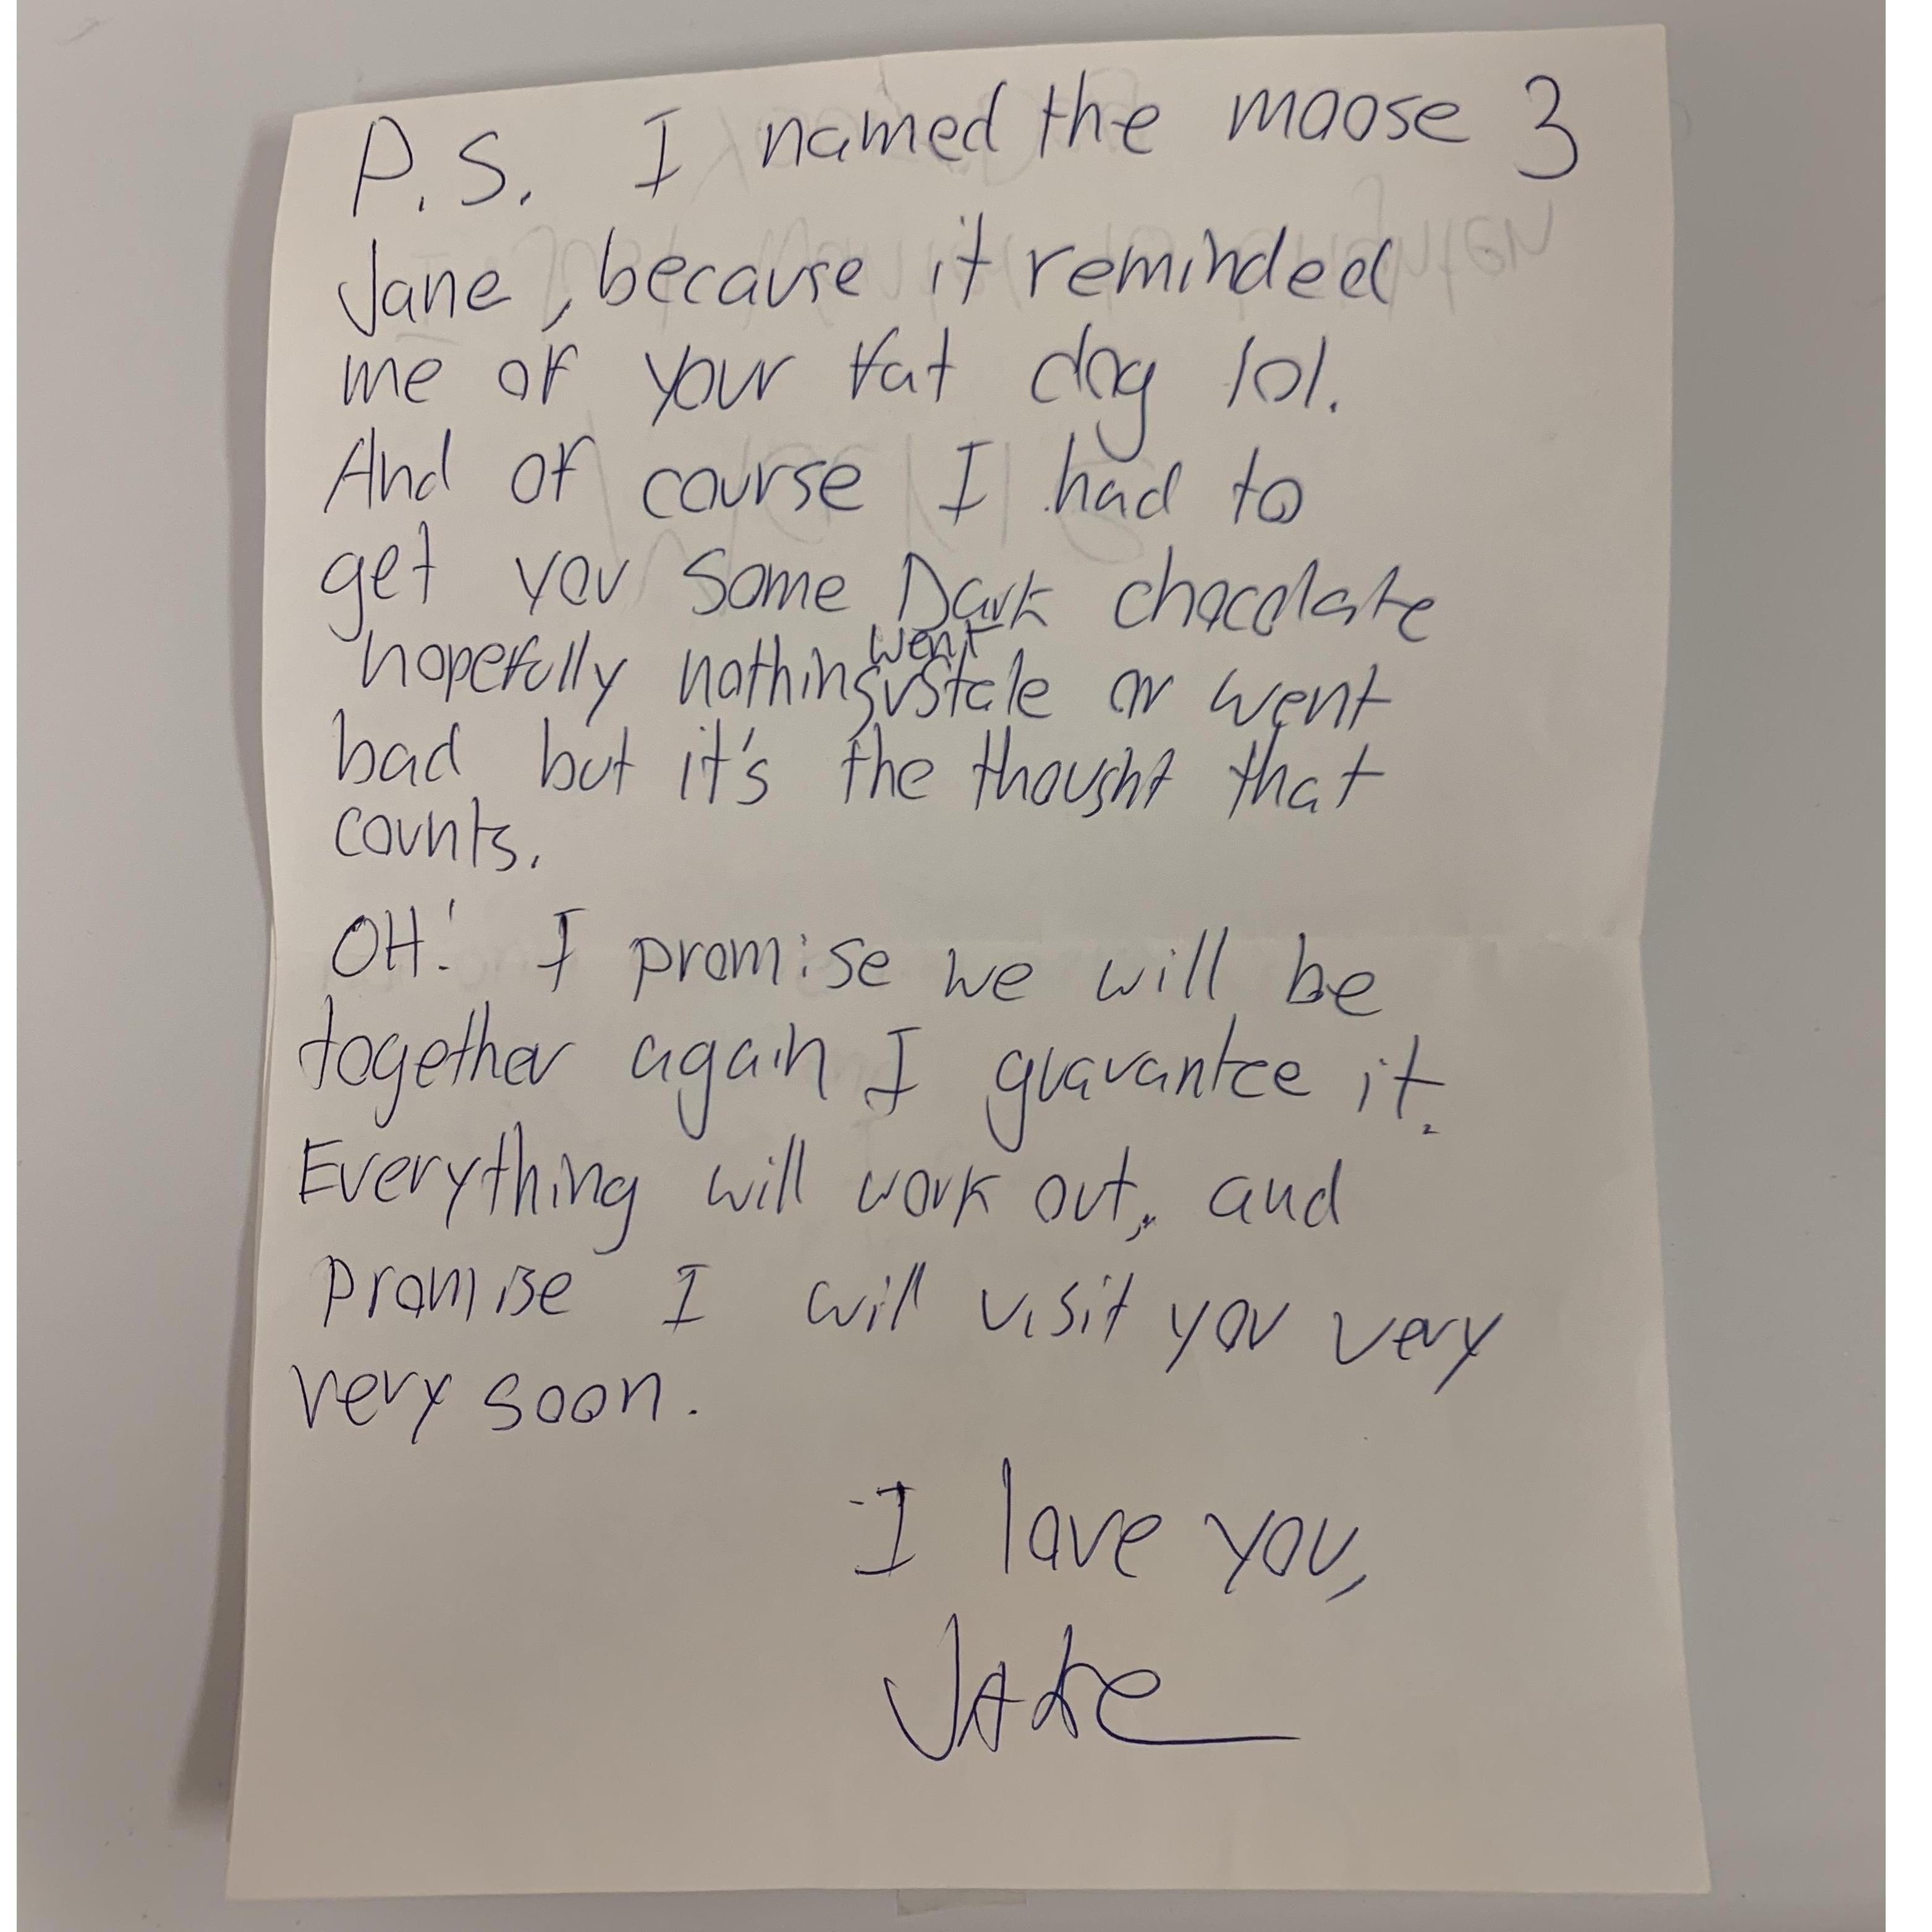 P.S. I named the moose 3
Jane, because it reminded
me of your fat dog lol.
And of course I had to
get you some Dark chocolate
hopefully nothing went stale or went
bad but it's the thought that
counts.
OH! I promise we will be
together again I guarantee it.
Everything will work out, and
promise I will visit you very
very soon.
-I love you,
Jake